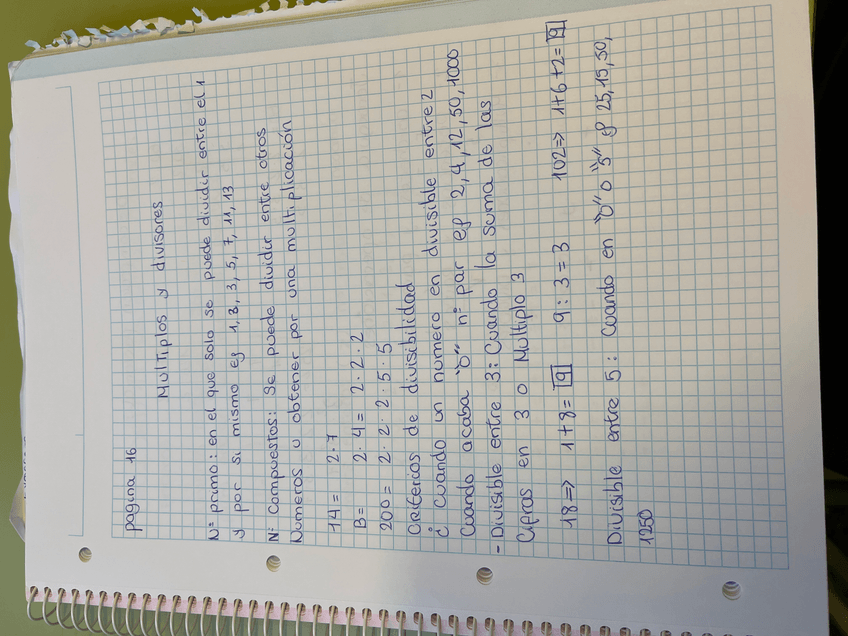 pagina 16
Multiplos y divisores
Nº primo: en el que solo se puede dividir entre el 1
y por si mismo ej 1, 2, 3, 5, 7, 11, 13
Nº Compuestos: Se puede dividir entre otros
Numeros u obtener por una multiplicación
14 = 2·7
8 = 2·4 = 2·2·2
200 = 2·2·2·5·5
Criterios de divisibilidad
¿ Cuando un numero en divisible entre 2
Cuando acaba "0" nº par ej 2, 4, 12, 50, 1000
- Divisible entre 3: Cuando la suma de las
Cifras en 3 o Multiplo 3
18 => 1+8 = 9 9:3=3 102 => 1+6+2 = 9
Divisible entre 5: Cuando en "0" o "5" ej 25, 15, 50,
1250